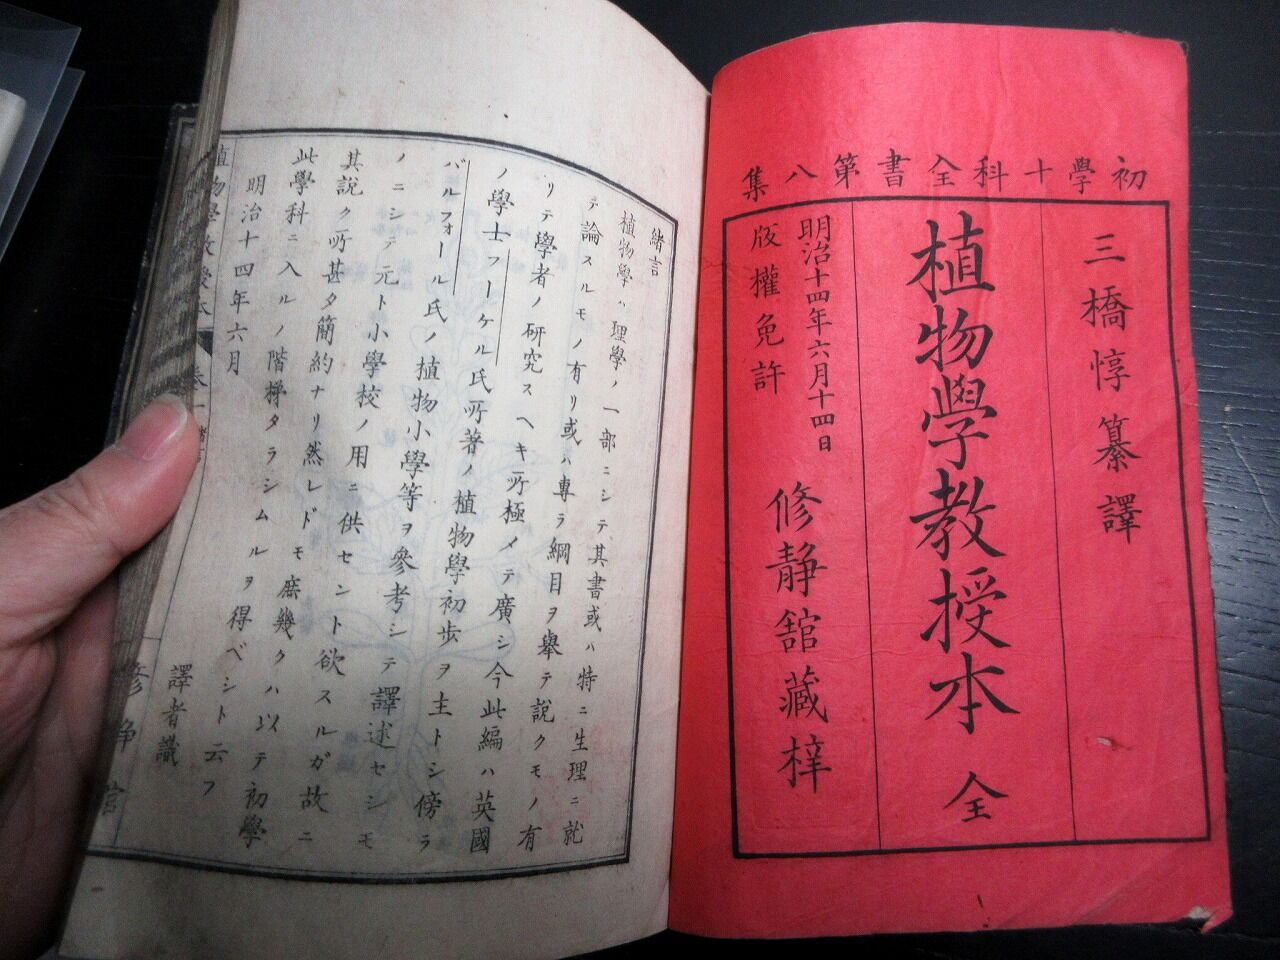 初學十科全書第八集
三橋惇纂譯
植物學教授本 全
明治十四年六月十四日
版權免許
修静舘藏梓
緒言
植物學ハ理學ノ一部ニシテ其書或ハ特ニ生理ニ就
テ論スルモノ有リ或ハ專ラ綱目ヲ舉テ説クモノ有
リテ學者ノ研究スヘキ所極メテ廣シ今此編ハ英國
ノ學士フーケル氏所著ノ植物學初歩ヲ主トシ傍ラ
バルフォール氏ノ植物小學等ヲ參考シテ譯述セシモ
ノニシテ元ト小學校ノ用ニ供セント欲スルガ故ニ
其説ク所甚タ簡約ナリ然レドモ庶幾クハ以テ初學
此學科ニ入ルノ階梯タラシムルヲ得ベシト云フ
明治十四年六月
譯者識
植物學教授本 卷一